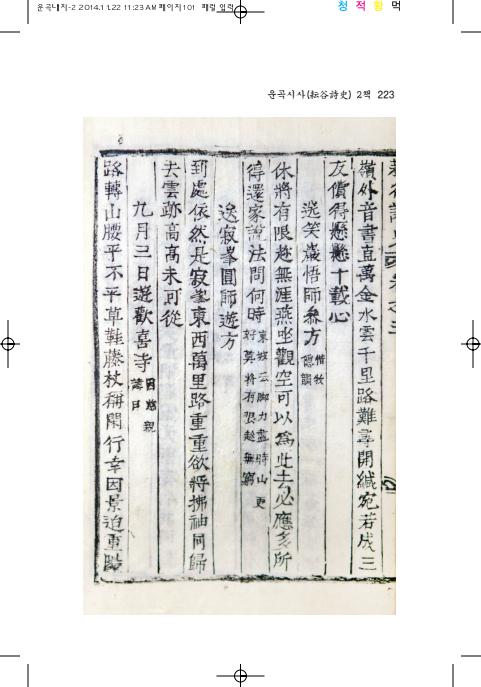 운곡내지-2 2014.11.22 11:23 AM 페이지101 패럴 입력
청 적 황 먹
운곡시사(耘谷詩史) 2책 223
嶺外音書直萬金水雲千里路難尋開緘宛若成三
友償得懸懸十載心
送笑巖悟師叅方 惜牧隱韻
休將有限趂無涯燕坐觀空可以爲此去必應多所
得還家說法問何時 東坡云脚力盡時山更好莫將有限趂無窮
送寂峯圓師遊方
到處依然是寂峯東西萬里路重重欲將拂袖同歸
去雲跡高高未可從
九月三日遊歡喜寺 因慈親諱日
路轉山腰乎不平草鞋藤杖稱閑行幸因景迫重